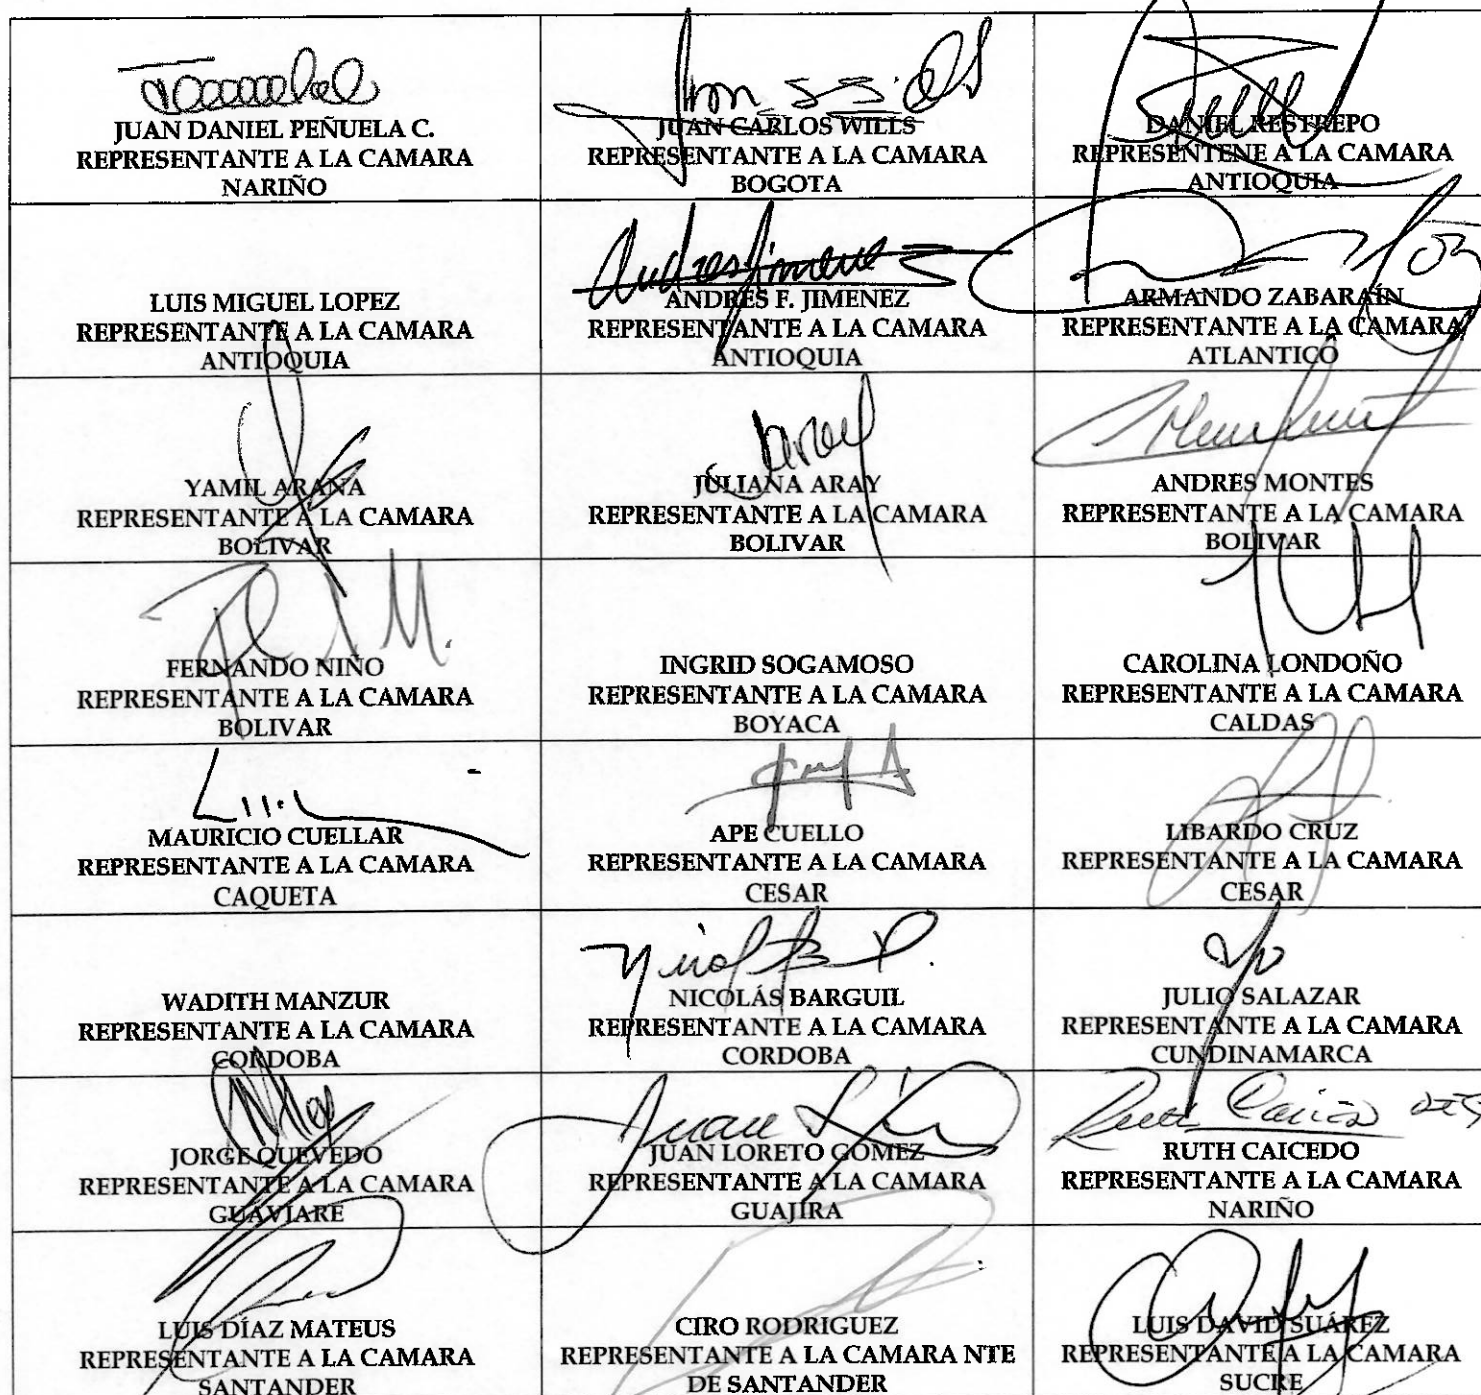 JUAN DANIEL PEÑUELA C.
REPRESENTANTE A LA CAMARA
NARIÑO
JUAN CARLOS WILLS
REPRESENTANTE A LA CAMARA
BOGOTA
DANIEL RESTREPO
REPRESENTENE A LA CAMARA
ANTIOQUIA
LUIS MIGUEL LOPEZ
REPRESENTANTE A LA CAMARA
ANTIOQUIA
Andres Jimenez
ANDRES F. JIMENEZ
REPRESENTANTE A LA CAMARA
ANTIOQUIA
ARMANDO ZABARAÍN
REPRESENTANTE A LA CAMARA
ATLANTICO
YAMIL ARANA
REPRESENTANTE A LA CAMARA
BOLIVAR
JULIANA ARAY
REPRESENTANTE A LA CAMARA
BOLIVAR
ANDRES MONTES
REPRESENTANTE A LA CAMARA
BOLIVAR
FERNANDO NIÑO
REPRESENTANTE A LA CAMARA
BOLIVAR
INGRID SOGAMOSO
REPRESENTANTE A LA CAMARA
BOYACA
CAROLINA LONDOÑO
REPRESENTANTE A LA CAMARA
CALDAS
MAURICIO CUELLAR
REPRESENTANTE A LA CAMARA
CAQUETA
APE CUELLO
REPRESENTANTE A LA CAMARA
CESAR
LIBARDO CRUZ
REPRESENTANTE A LA CAMARA
CESAR
WADITH MANZUR
REPRESENTANTE A LA CAMARA
CORDOBA
NICOLÁS BARGUIL
REPRESENTANTE A LA CAMARA
CORDOBA
JULIO SALAZAR
REPRESENTANTE A LA CAMARA
CUNDINAMARCA
JORGE QUEVEDO
REPRESENTANTE A LA CAMARA
GUAVIARE
Juan
JUAN LORETO GOMEZ
REPRESENTANTE A LA CAMARA
GUAJIRA
Ruth Caicedo
RUTH CAICEDO
REPRESENTANTE A LA CAMARA
NARIÑO
LUIS DÍAZ MATEUS
REPRESENTANTE A LA CAMARA
SANTANDER
CIRO RODRIGUEZ
REPRESENTANTE A LA CAMARA NTE
DE SANTANDER
LUIS DAVID SUÁREZ
REPRESENTANTE A LA CAMARA
SUCRE